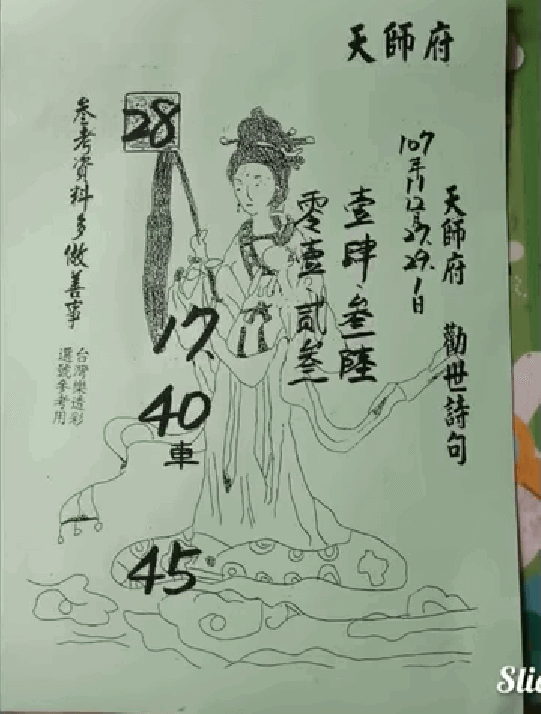 天師府
天師府 勸世詩句
107年11、12月27.29.1日
壹肆、叁陸
零壹、貳叁
28
17、
40
車
45
參考資料多做善事
台灣樂透彩
選號參考用
Slid